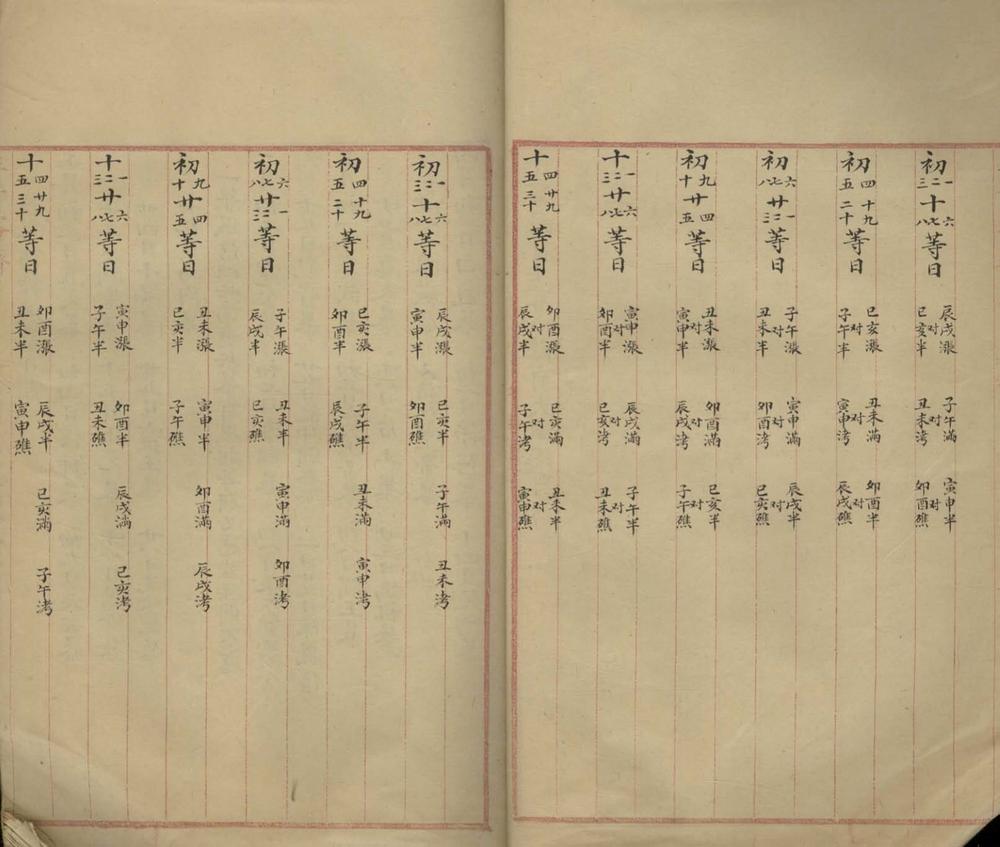 初一二三十六七八等日 辰戌漲对巳亥半 子午滿对丑未洘 寅申半对卯酉礁
初四五十九二十等日 巳亥漲对子午半 丑未滿对寅申洘 卯酉半对辰戌礁
初六七八廿一二三等日 子午漲对丑未半 寅申滿对卯酉洘 辰戌半对巳亥礁
初九十廿四五等日 丑未漲对寅申半 卯酉滿对辰戌洘 巳亥半对子午礁
十一二三廿六七八等日 寅申漲对卯酉半 辰戌滿对巳亥洘 子午半对丑未礁
十四五廿九三十等日 卯酉漲对辰戌半 巳亥滿对子午洘 丑未半对寅申礁
初一二三十六七八等日 辰戌漲寅申半 巳亥半卯酉礁 子午滿 丑未洘
初四五十九二十等日 巳亥漲卯酉半 子午半辰戌礁 丑未滿 寅申洘
初六七八廿一二三等日 子午漲辰戌半 丑未半巳亥礁 寅申滿 卯酉洘
初九十廿四五等日 丑未漲巳亥半 寅申半子午礁 卯酉滿 辰戌洘
十一二三廿六七八等日 寅申漲子午半 卯酉半丑未礁 辰戌滿 巳亥洘
十四五廿九三十等日 卯酉漲丑未半 辰戌半寅申礁 巳亥滿 子午洘